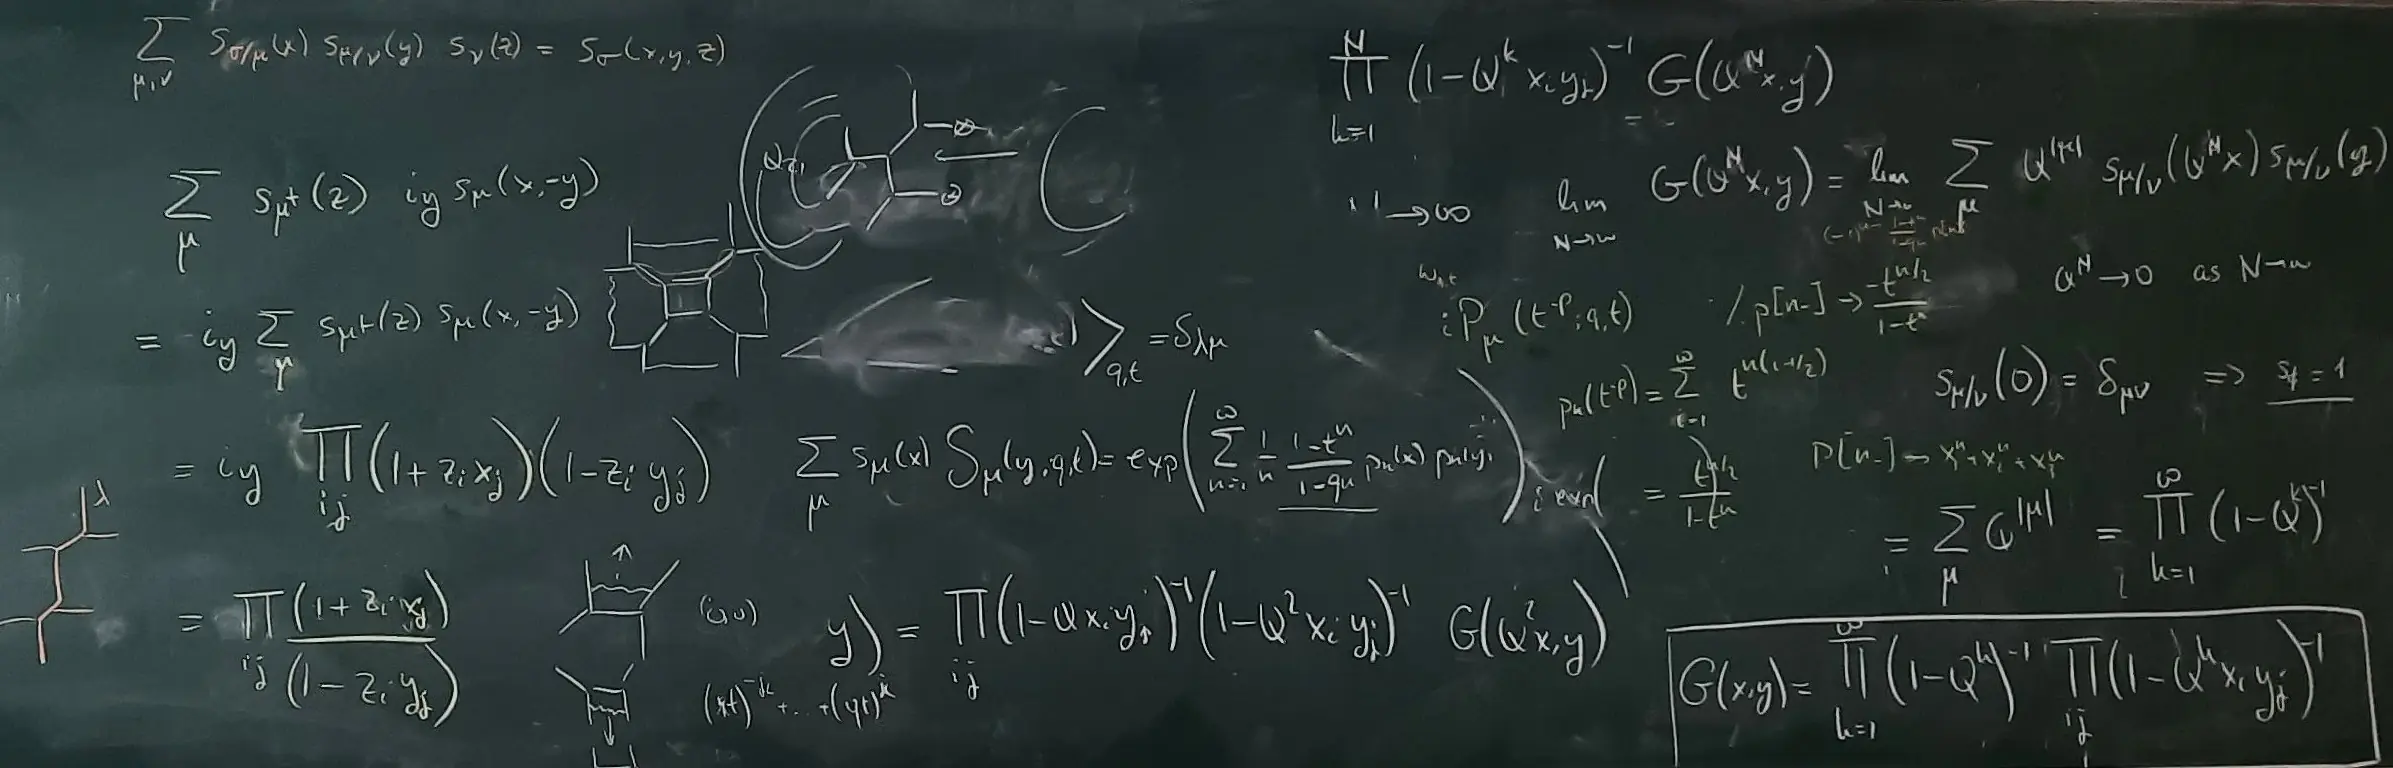 ∑_{μ,ν} s_{σ/μ}(x) s_{μ/ν}(y) s_ν(z) = s_σ(x,y,z)
∑_μ s_{μ^t}(z) i_y s_μ(x,-y)
= i_y ∑_μ s_{μ^t}(z) s_μ(x,-y)
= i_y ∏_{ij} (1+z_i x_j)(1-z_i y_j)
λ
= ∏_{ij} (1+z_i x_j) / (1-z_i y_j)
⟩_{q,t} = δ_{λμ}
∑_μ s_μ(x) S_μ(y,q,t) = exp(∑_{n=1}^∞ 1/n (1-t^n)/(1-q^n) p_n(x) p_n(y))
y) = ∏_{ij} (1-Q x_i y_j)^{-1} (1-Q^2 x_i y_j)^{-1} G(Q^2 x,y)
+...+(qt)^k
∏_{k=1}^N (1-Q^k x_i y_j)^{-1} G(Q^N x,y)
→∞ lim_{N→∞} G(Q^N x,y) = lim_{N→∞} ∑_μ Q^{|μ|} s_{μ/ν}(Q^N x) s_{μ/ν}(y)
Q^N → 0 as N→∞
i P_μ(t^{-ρ};q,t) /. p[n_] → -t^{n/2} / (1-t^n)
p_n(t^{-ρ}) = ∑_{i=1}^∞ t^{n(i-1/2)}
= t^{n/2} / (1-t^n)
s_{μ/ν}(0) = δ_{μν} ⇒
p[n_] → x_1^n + x_2^n + x_3^n
= ∑_μ Q^{|μ|} = ∏_{k=1}^∞ (1-Q^k)^{-1}
G(x,y) = ∏_{k=1}^∞ (1-Q^k)^{-1} ∏_{ij} (1-Q^k x_i y_j)^{-1}